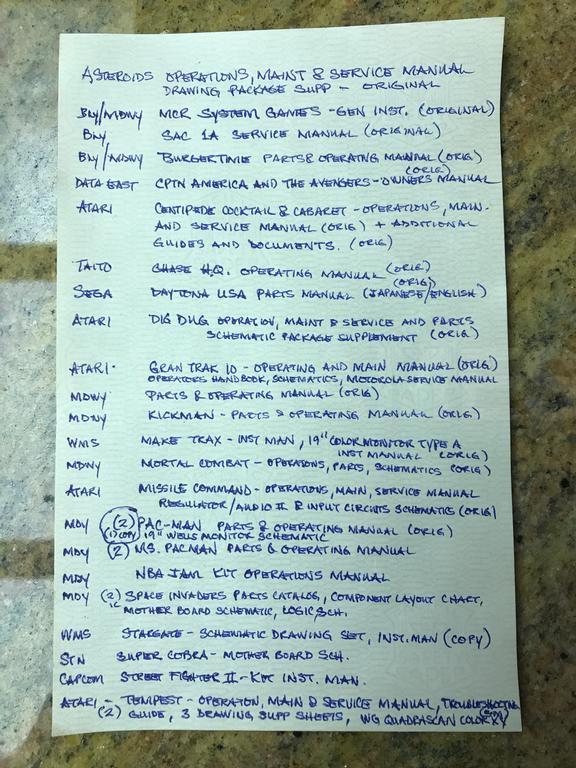 ASTEROIDS OPERATIONS, MAINT & SERVICE MANUAL
DRAWING PACKAGE SUPP - ORIGINAL
BLY/MDWY MCR SYSTEM GAMES - GEN INST. (ORIGINAL)
BLY SAC 1A SERVICE MANUAL (ORIGINAL)
BLY/MDWY BURGERTIME PARTS & OPERATING MANUAL (ORIG)
(ORIG)
DATA EAST CPTN AMERICA AND THE AVENGERS - OWNERS MANUAL
ATARI CENTIPEDE COCKTAIL & CABARET - OPERATIONS, MAIN.
AND SERVICE MANUAL (ORIG) + ADDITIONAL
GUIDES AND DOCUMENTS. (ORIG)
TAITO CHASE H.Q. OPERATING MANUAL (ORIG)
(ORIG)
SEGA DAYTONA USA PARTS MANUAL (JAPANESE/ENGLISH)
ATARI DIG DUG OPERATION, MAINT & SERVICE AND PARTS
SCHEMATIC PACKAGE SUPPLEMENT (ORIG)
ATARI GRAN TRAK 10 - OPERATING AND MAIN MANUAL (ORIG)
OPERATORS HANDBOOK, SCHEMATICS, MOTOROLA SERVICE MANUAL
MDWY PARTS & OPERATING MANUAL (ORIG)
MDWY KICKMAN - PARTS & OPERATING MANUAL (ORIG)
WMS MAKE TRAX - INST MAN, 19" COLOR MONITOR TYPE A
INST MANUAL (ORIG)
MDWY MORTAL COMBAT - OPERATIONS, PARTS, SCHEMATICS (ORIG)
ATARI MISSILE COMMAND - OPERATIONS, MAIN, SERVICE MANUAL
REGULATOR/AUDIO II & INPUT CIRCUITS SCHEMATICS (ORIG)
MDY (2) PAC-MAN PARTS & OPERATING MANUAL (ORIG)
(1) COPY 19" WELLS MONITOR SCHEMATIC
MDY (2) MS. PACMAN PARTS & OPERATING MANUAL
MDY NBA JAM KIT OPERATIONS MANUAL
MDY (2) SPACE INVADERS PARTS CATALOG, COMPONENT LAYOUT CHART,
MOTHER BOARD SCHEMATIC, LOGIC SCH.
WMS STARGATE - SCHEMATIC DRAWING SET, INST. MAN (COPY)
STN SUPER COBRA - MOTHER BOARD SCH.
CAPCOM STREET FIGHTER II - KIT INST. MAN.
ATARI - TEMPEST - OPERATION, MAIN & SERVICE MANUAL, TROUBLESHOOTING
(2) GUIDE, 3 DRAWING SUPP SHEETS, WG QUADRASCAN COLOR XY